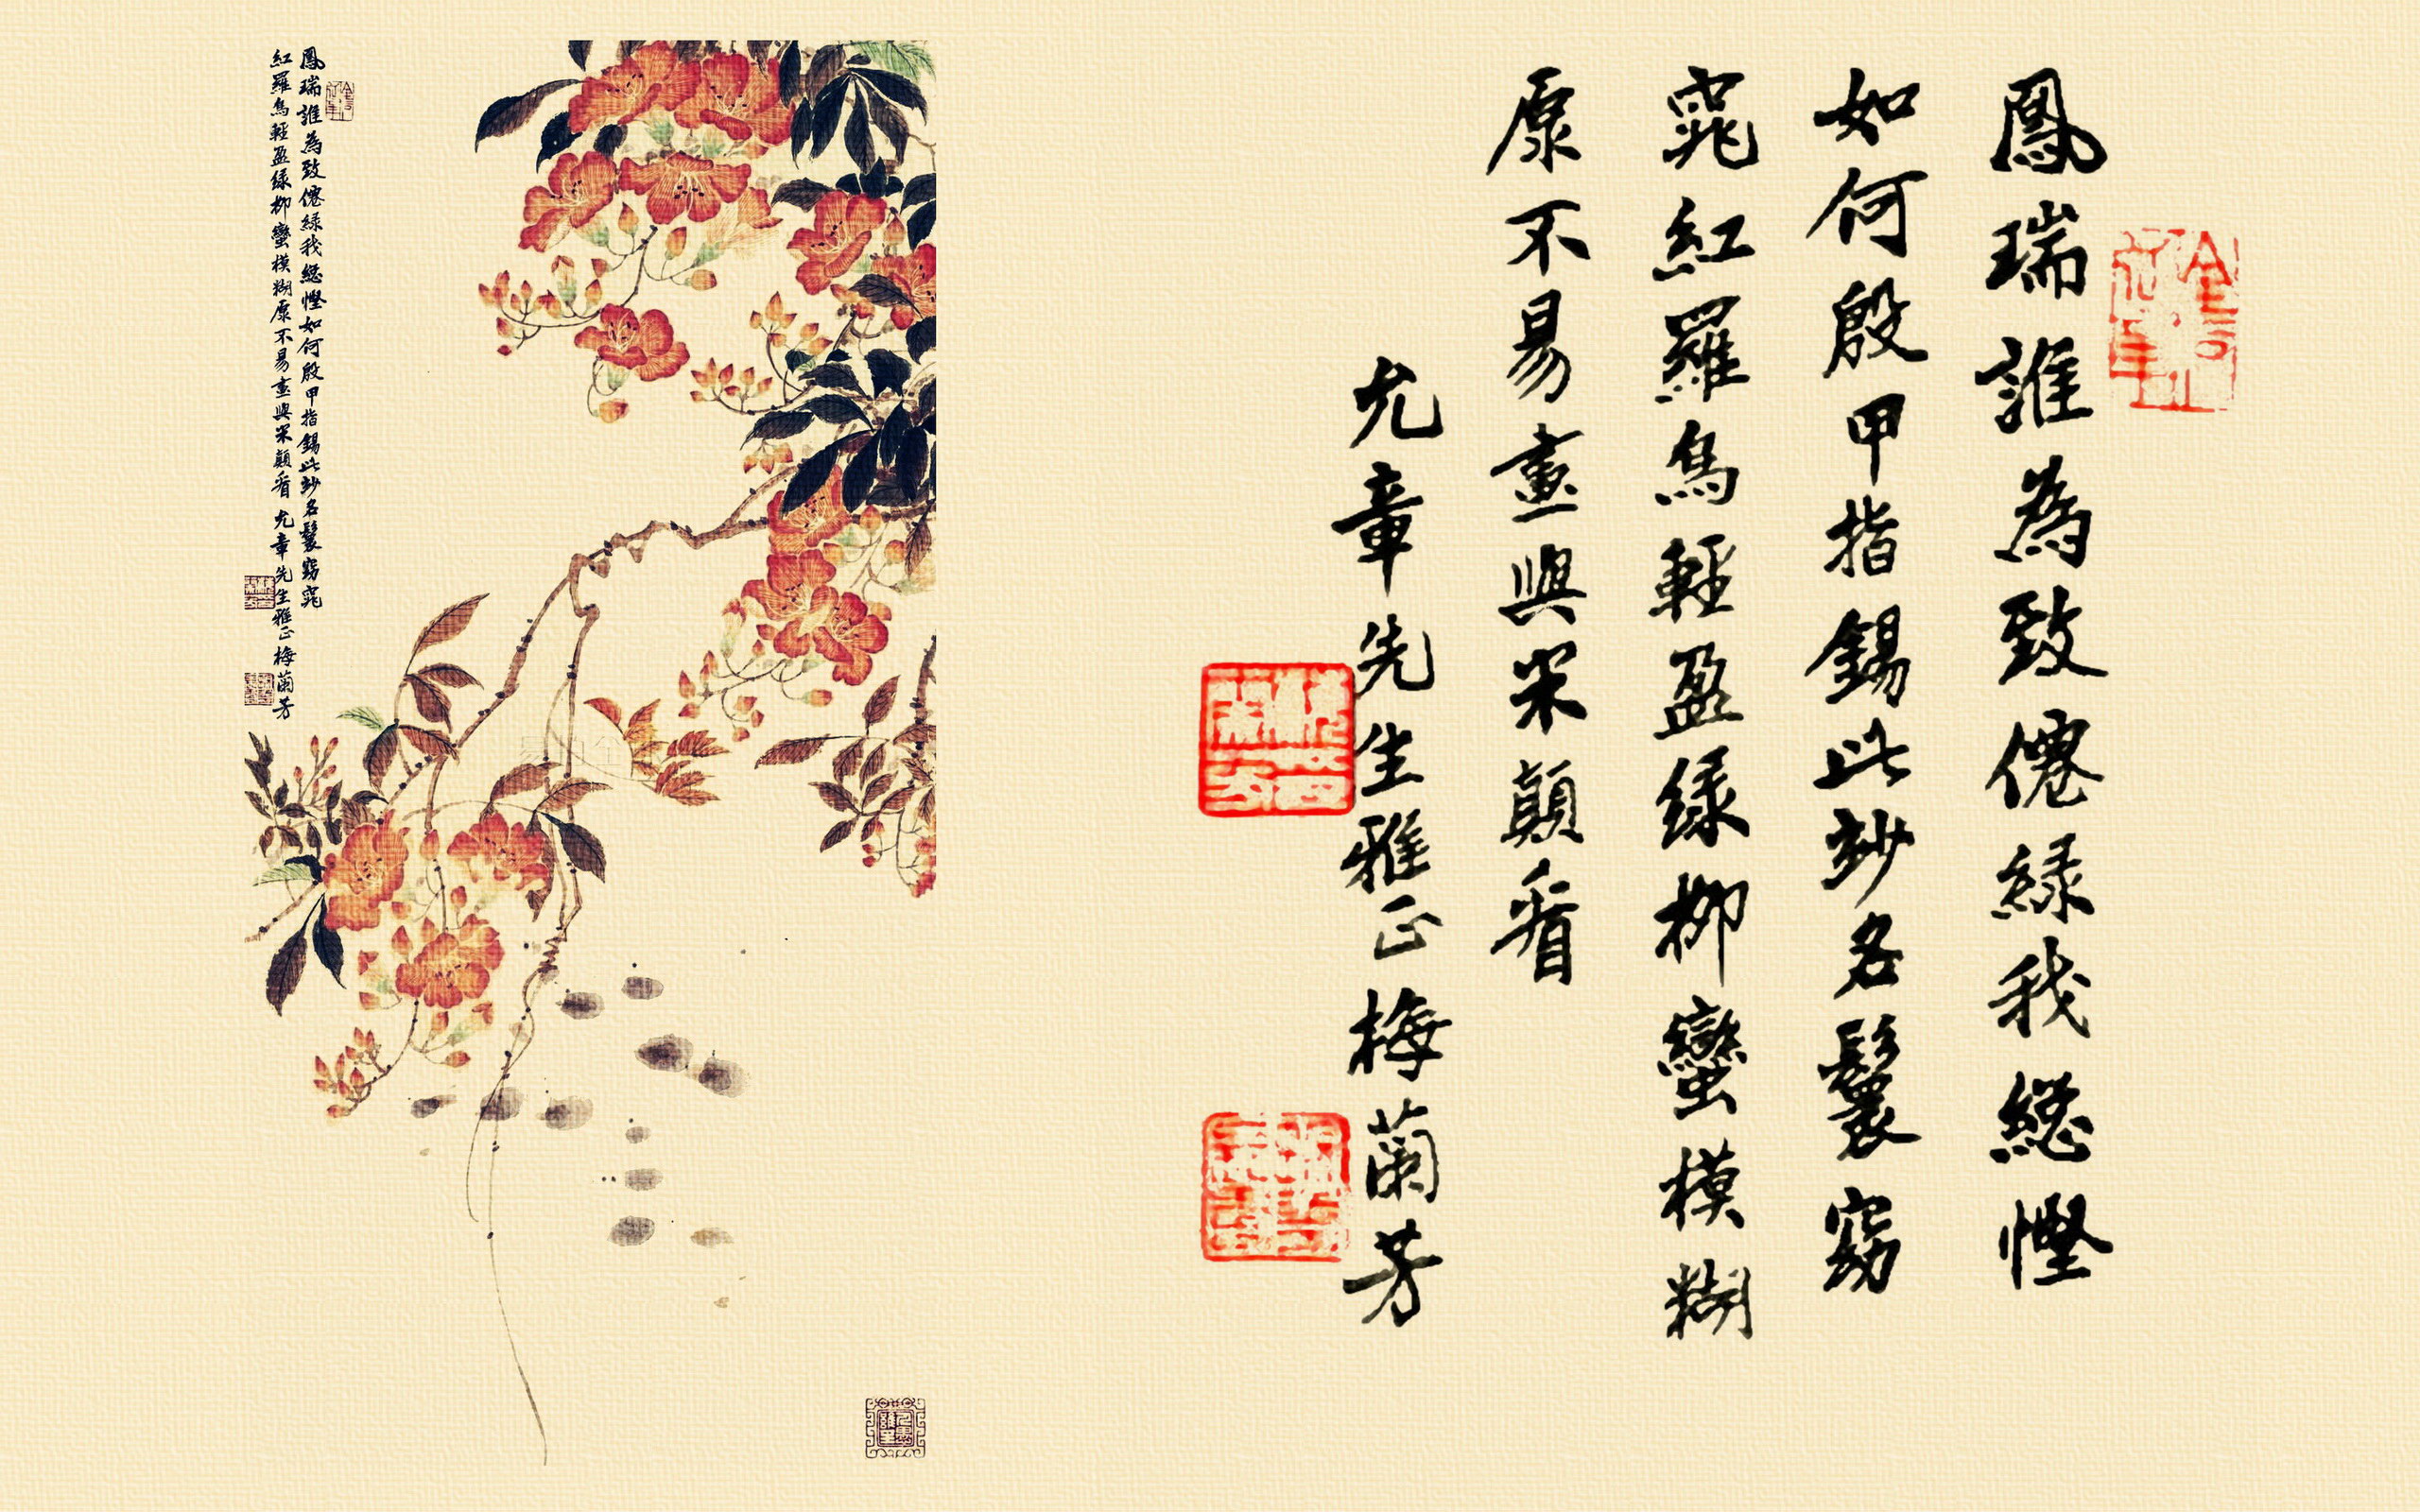 鳳瑞誰為致僊緣我緫慳
如何殷甲指錫此妙名鬟窈
窕紅羅鳥輕盈緑柳蠻模糊
原不易畫與米顛看
允章先生雅正梅蘭芳
鳳瑞誰為致僊緣我緫慳如何殷甲指錫此妙名鬟窈窕
紅羅鳥輕盈緑柳蠻模糊原不易畫與米顛看允章先生雅正梅蘭芳